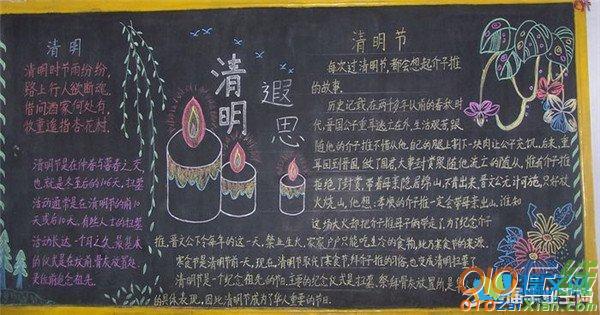 清明
清明时节雨纷纷,
路上行人欲断魂,
借问酒家何处有,
牧童遥指杏花村,
清明节是在仲春与暮春之交,
也就是冬至后的106天,扫墓
活动通常是在清明节的前10
天或后10天,有些人士的扫墓
活动长达一个月之久,最基本
的仪式是在坟前、骨灰放置处
灵位前追念祖先。
清明
遐思
清明节
每次过清明节,都会想起介子推
的故事。
历史记载,在两千多年以前的春秋时
代,晋国公子重耳逃亡在外,生活艰苦跟
随他的介子推不惜从他自己的腿上割下一块肉让公子充饥。后来,重
耳回到晋国,做了国君大事封赏跟随他流亡的随从,惟有介子推
拒绝了封赏,带着母亲隐居绵山,不肯出来,晋文公无计可施,只好放
火烧山,他想:孝顺的介子推一定会带母亲出山,谁知
这场大火却把介子推母子俩带走了,为了纪念介子
推,晋文公下令每年的这一天,禁止生火,家家户户只能吃生冷的食物,此乃寒食节的来源
寒食节是清明节前一天,现在,清明节取代了寒食节,拜介子推的习俗,也变成清明扫墓了
清明节是一个纪念祖先的节日,主要的纪念仪式是扫墓,祭拜骨灰放置所是
的具体表现,因此清明节成为了华人重要的节日.
OlOZaiXian.Com